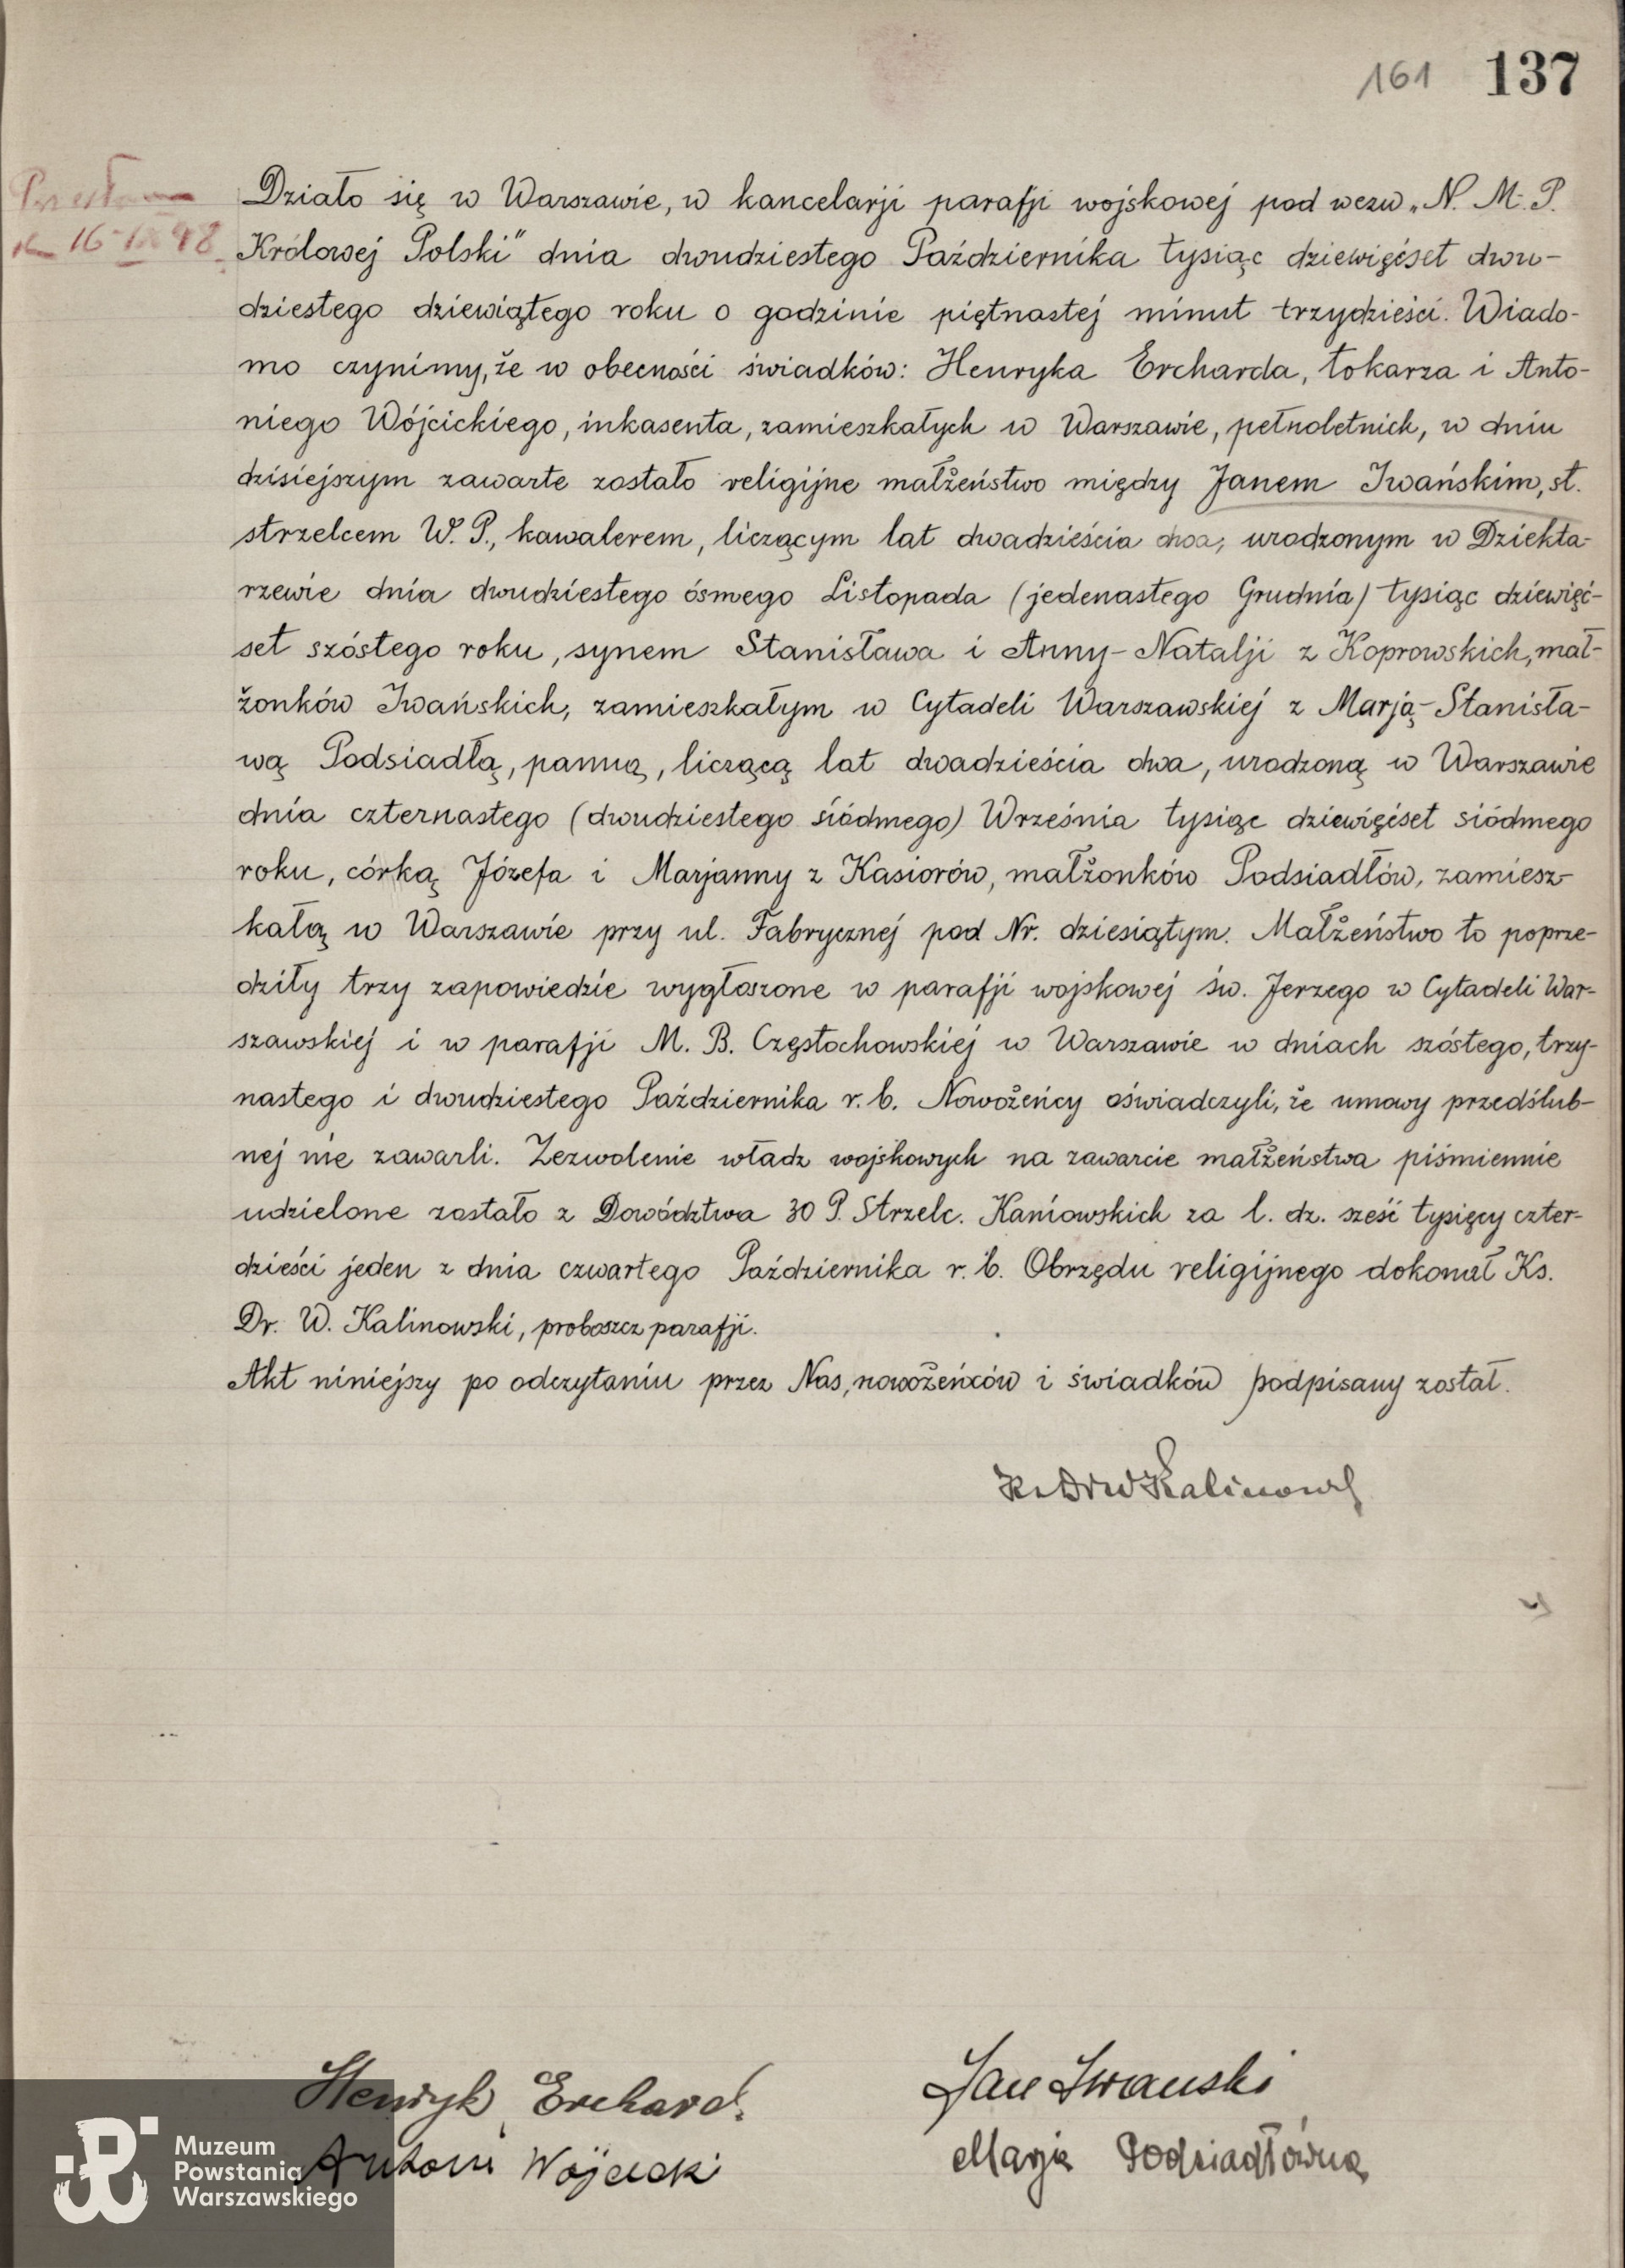 161 137
16-IX 48
Działo się w Warszawie, w kancelarji parafji wojskowej pod wezw „N. M. P.
Królowej Polski" dnia dwudziestego Października tysiąc dziewięćset dwu-
dziestego dziewiątego roku o godzinie piętnastej minut trzydzieści. Wiado-
mo czynimy, że w obecności świadków: Henryka Ercharda, tokarza i Anto-
niego Wójcickiego, inkasenta, zamieszkałych w Warszawie, pełnoletnich, w dniu
dzisiejszym zawarte zostało religijne małżeństwo między Janem Iwańskim, st.
strzelcem W. P., kawalerem, liczącym lat dwadzieścia dwa, urodzonym w Dziekta-
rzewie dnia dwudziestego ósmego Listopada (jedenastego Grudnia) tysiąc dziewięć-
set szóstego roku, synem Stanisława i Anny-Natalji z Koprowskich, mał-
żonków Iwańskich, zamieszkałym w Cytadeli Warszawskiej z Marją-Stanisła-
wą Podsiadłą, panną, liczącą lat dwadzieścia dwa, urodzoną w Warszawie
dnia czternastego (dwudziestego siódmego) Września tysiąc dziewięćset siódmego
roku, córką Józefa i Marjanny z Kasiorów, małżonków Podsiadłów, zamiesz-
kałą w Warszawie przy ul. Fabrycznej pod Nr. dziesiątym. Małżeństwo to poprze-
dziły trzy zapowiedzie wygłoszone w parafji wojskowej św. Jerzego w Cytadeli War-
szawskiej i w parafji M. B. Częstochowskiej w Warszawie w dniach szóstego, trzy-
nastego i dwudziestego Października r. b. Nowożeńcy oświadczyli, że umowy przedślub-
nej nie zawarli. Zezwolenie władz wojskowych na zawarcie małżeństwa piśmiennie
udzielone zostało z Dowództwa 30 P. Strzelc. Kaniowskich za l. dz. sześć tysięcy czter-
dzieści jeden z dnia czwartego Października r. b. Obrzędu religijnego dokonał Ks.
Dr. W. Kalinowski, proboszcz parafji.
Akt niniejszy po odczytaniu przez Nas, nowożeńców i świadków podpisany został.
Ks Dr W Kalinowski
Henryk Erchard. Jan Iwański
Antoni Wójcicki Marja Podsiadłówna
Muzeum
Powstania
Warszawskiego